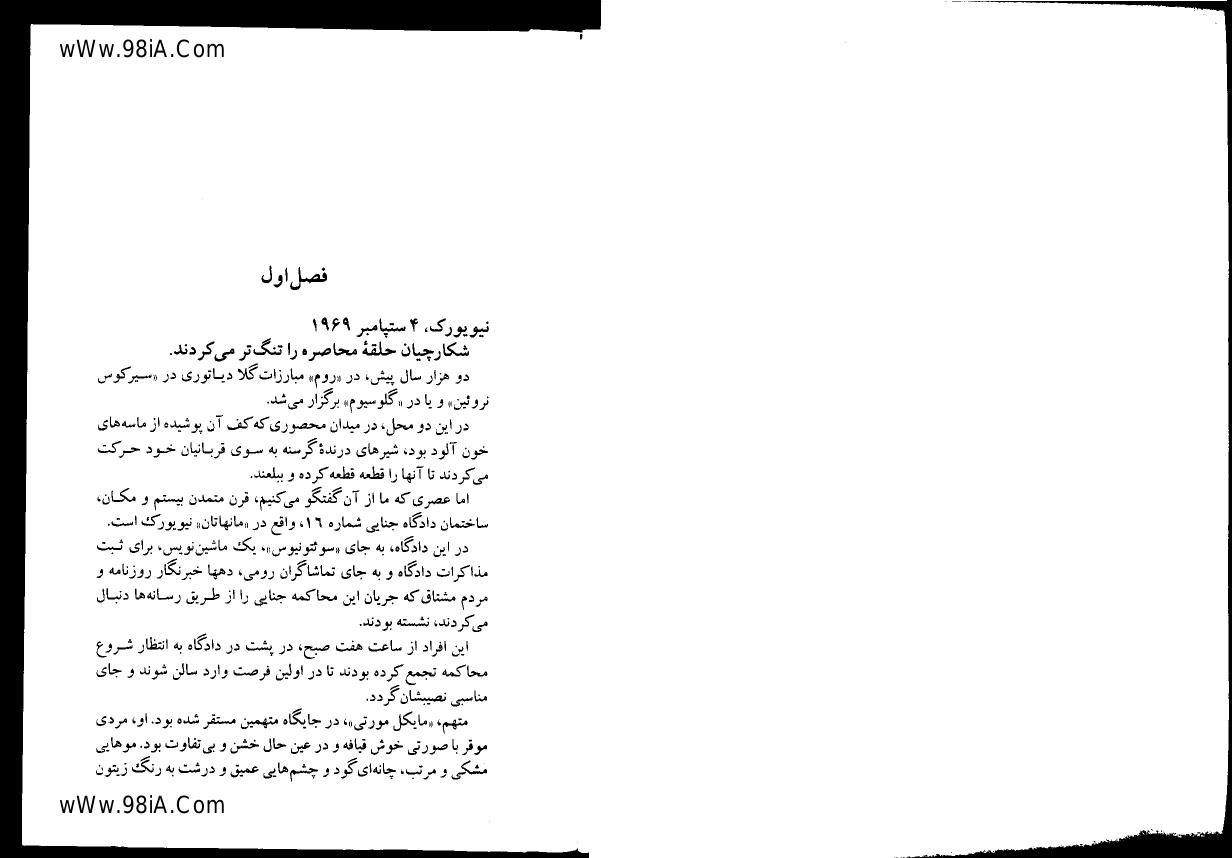 wWw.98iA.Com
فصل اول
نیویورک، ۴ ستپامبر ۱۹۶۹
شکارچیان حلقهٔ محاصره را تنگ‌تر می‌کردند.
دو هزار سال پیش، در «روم» مبارزات گلا دیاتوری در «سیرکوس
نروئین» و یا در «گلوسیوم» برگزار می‌شد.
در این دو محل، در میدان محصوری که کف آن پوشیده از ماسه‌های
خون آلود بود، شیرهای درندهٔ گرسنه به سوی قربانیان خود حرکت
می‌کردند تا آنها را قطعه قطعه کرده و ببلعند.
اما عصری که ما از آن گفتگو می‌کنیم، قرن متمدن بیستم و مکان،
ساختمان دادگاه جنایی شماره ۱۶، واقع در «مانهاتان» نیویورک است.
در این دادگاه، به جای «سوئتونیوس»، یک ماشین‌نویس، برای ثبت
مذاکرات دادگاه و به جای تماشاگران رومی، دهها خبرنگار روزنامه و
مردم مشتاق که جریان این محاکمه جنایی را از طریق رسانه‌ها دنبال
می‌کردند، نشسته بودند.
این افراد از ساعت هفت صبح، در پشت در دادگاه به انتظار شروع
محاکمه تجمع کرده بودند تا در اولین فرصت وارد سالن شوند و جای
مناسبی نصیبشان گردد.
متهم، «مایکل مورتی»، در جایگاه متهمین مستقر شده بود. او، مردی
موقر با صورتی خوش قیافه و در عین حال خشن و بی‌تفاوت بود. موهایی
مشکی و مرتب، چانه‌ای گود و چشم‌هایی عمیق و درشت به رنگ زیتون
wWw.98iA.Com